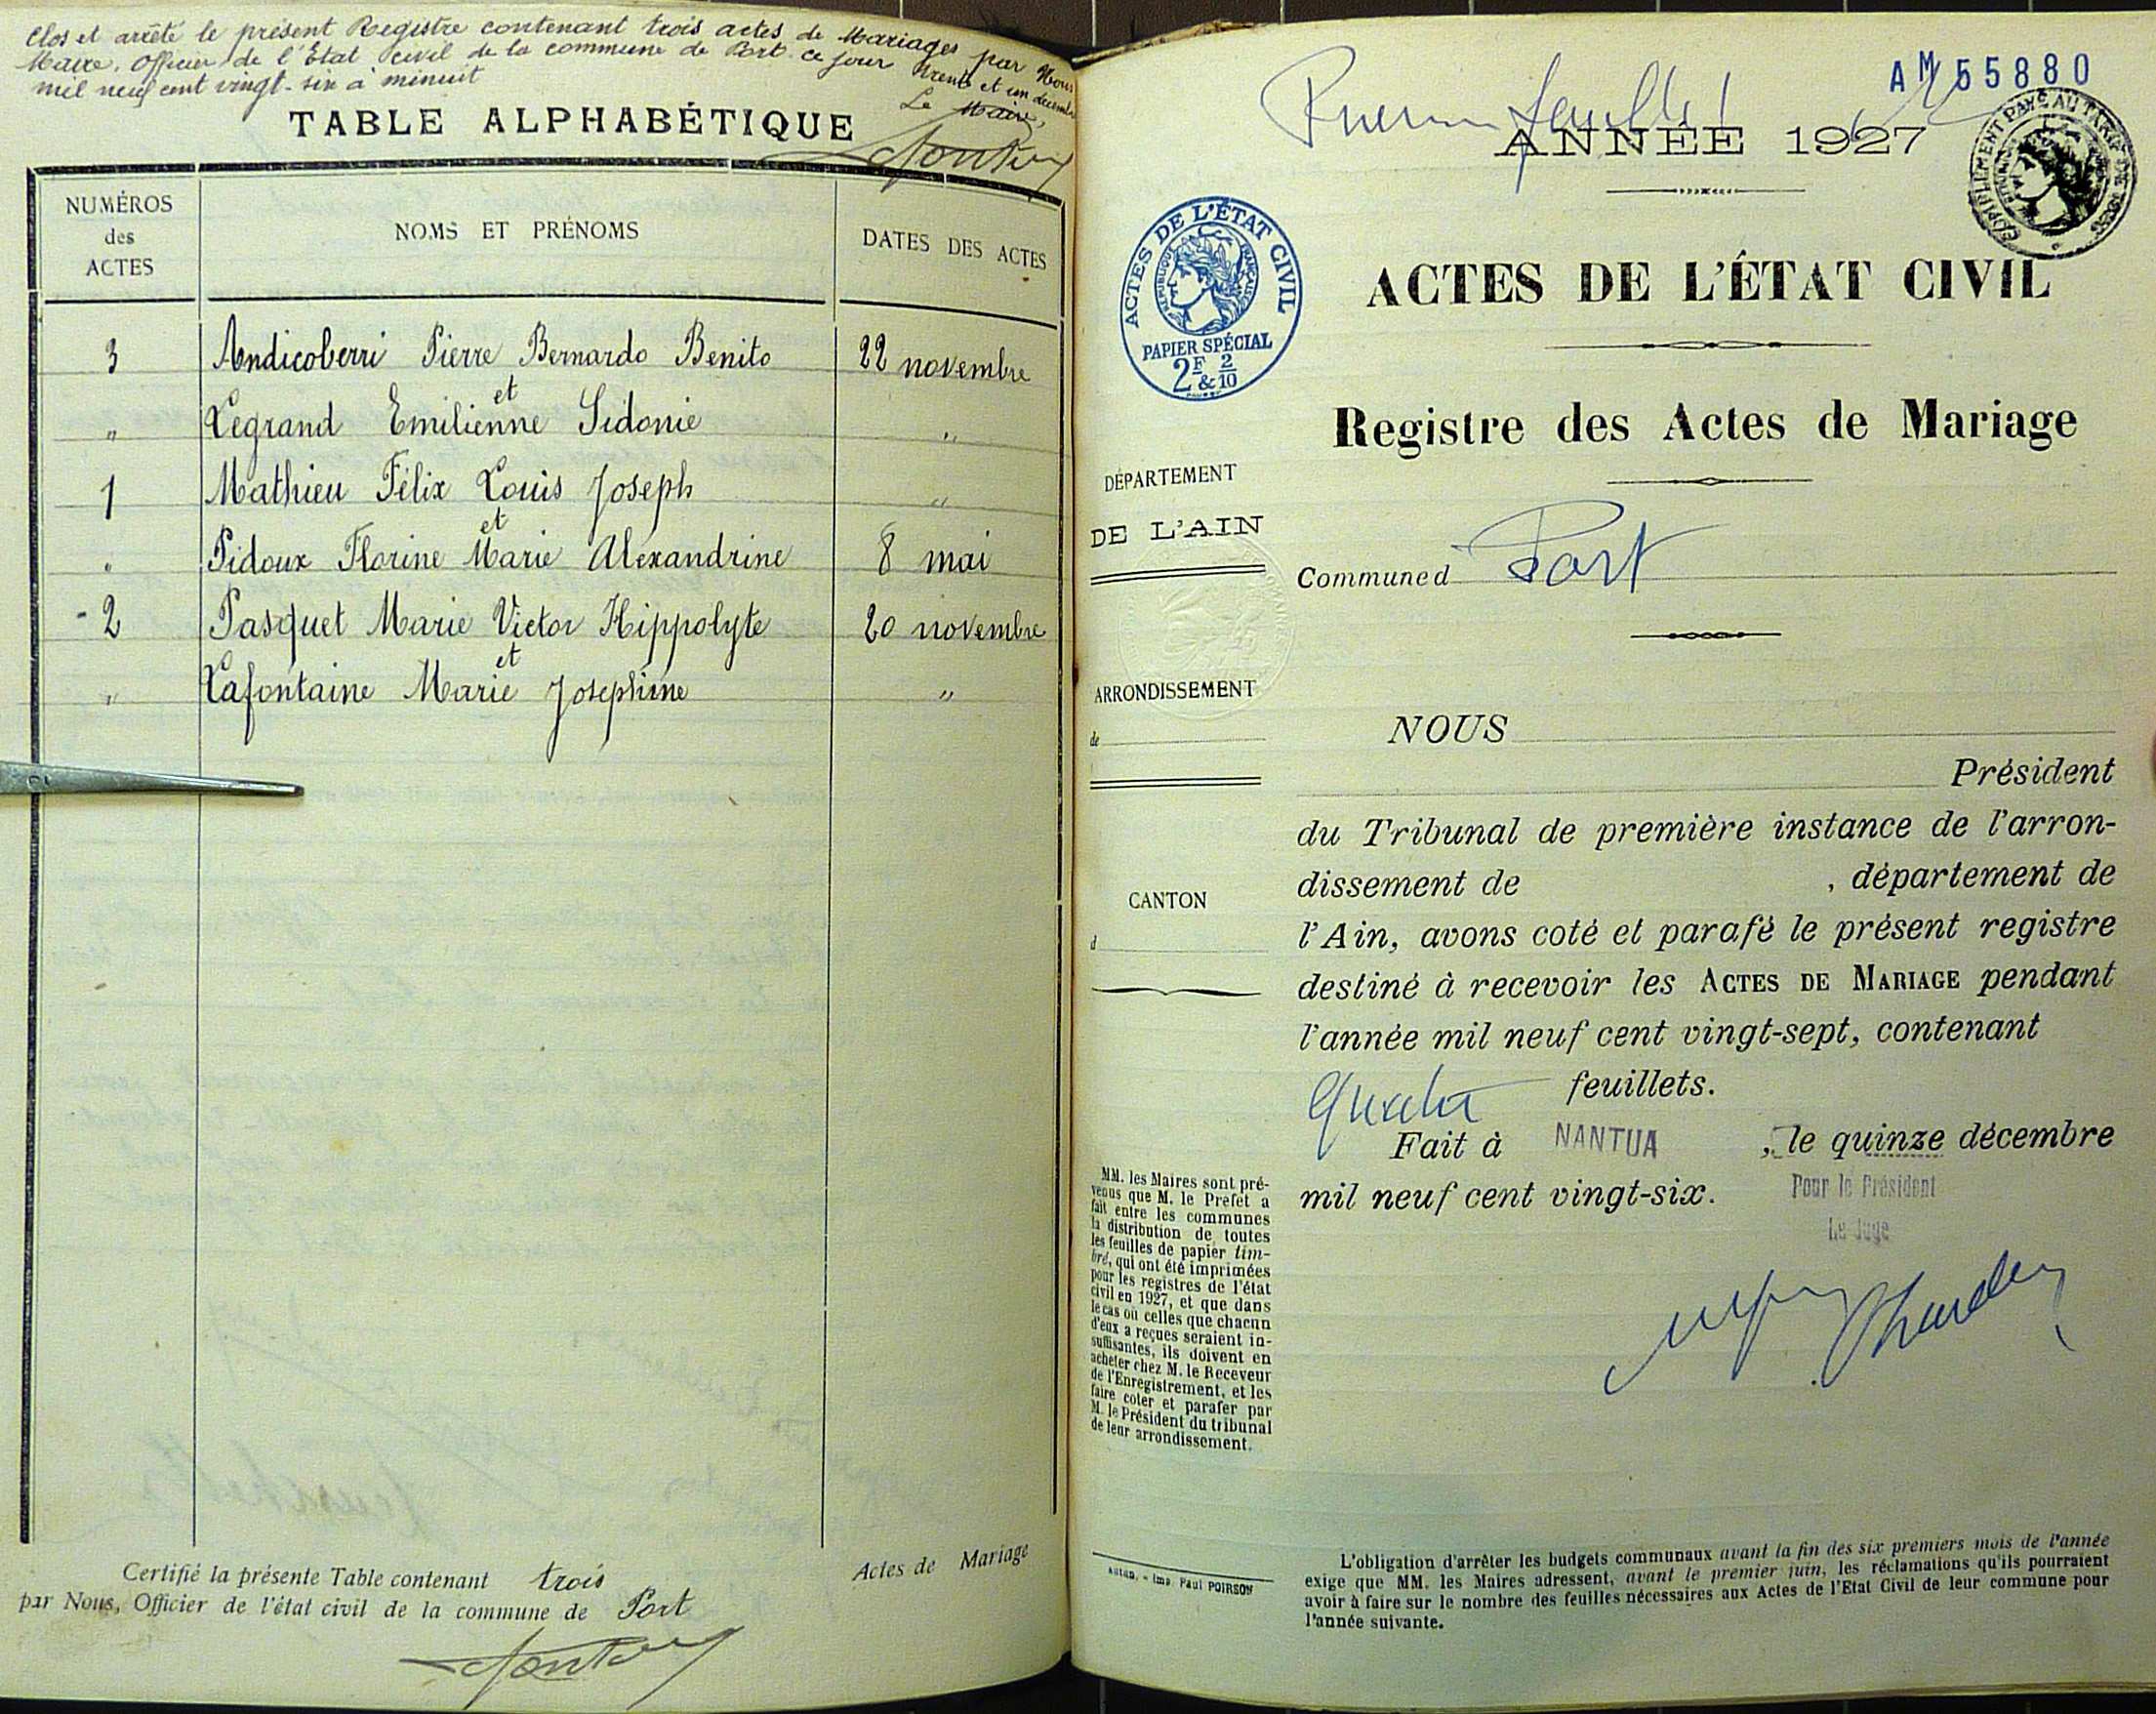 Clos et arrêté le présent Registre contenant trois actes de Mariages par Nous
Maire, Officier de l'Etat civil de la commune de Port ce jour trente et un décembre
mil neuf cent vingt-six à minuit
Le Maire,
TABLE ALPHABÉTIQUE
NUMÉROS des ACTES NOMS ET PRÉNOMS DATES DES ACTES
3 Andicoberri Pierre Bernardo Benito 22 novembre
et
" Legrand Emilienne Sidonie "
1 Mathieu Félix Louis Joseph "
et
" Pidoux Florine Marie Alexandrine 8 mai
- 2 Pasquet Marie Victor Hippolyte 20 novembre
et
" Lafontaine Marie Josephine "
Certifié la présente Table contenant trois Actes de Mariage
par Nous, Officier de l'état civil de la commune de Port
AM 55880
Premier feuillet
ANNÉE 1927
ACTES DE L'ÉTAT CIVIL
RÉPUBLIQUE FRANÇAISE
PAPIER SPÉCIAL
2F & 2/10
ACTES DE L'ÉTAT CIVIL
Registre des Actes de Mariage
DÉPARTEMENT
DE L'AIN
Commune d Port
ARRONDISSEMENT
de
CANTON
d
NOUS
Président
du Tribunal de première instance de l'arron-
dissement de , département de
l'Ain, avons coté et parafé le présent registre
destiné à recevoir les ACTES DE MARIAGE pendant
l'année mil neuf cent vingt-sept, contenant
feuillets.
Fait à NANTUA , le quinze décembre
mil neuf cent vingt-six.
Pour le Président
Le Juge
MM. les Maires sont pré-
venus que M. le Préfet a
fait entre les communes
la distribution de toutes
les feuilles de papier tim-
bré, qui ont été imprimées
pour les registres de l'état
civil en 1927, et que dans
le cas où celles que chacun
d'eux a reçues seraient in-
suffisantes, ils doivent en
acheter chez M. le Receveur
de l'Enregistrement, et les
faire coter et parafer par
M. le Président du tribunal
de leur arrondissement.
Imp. Paul POIRSON
L'obligation d'arrêter les budgets communaux avant la fin des six premiers mois de l'année
exige que MM. les Maires adressent, avant le premier juin, les réclamations qu'ils pourraient
avoir à faire sur le nombre des feuilles nécessaires aux Actes de l'Etat Civil de leur commune pour
l'année suivante.